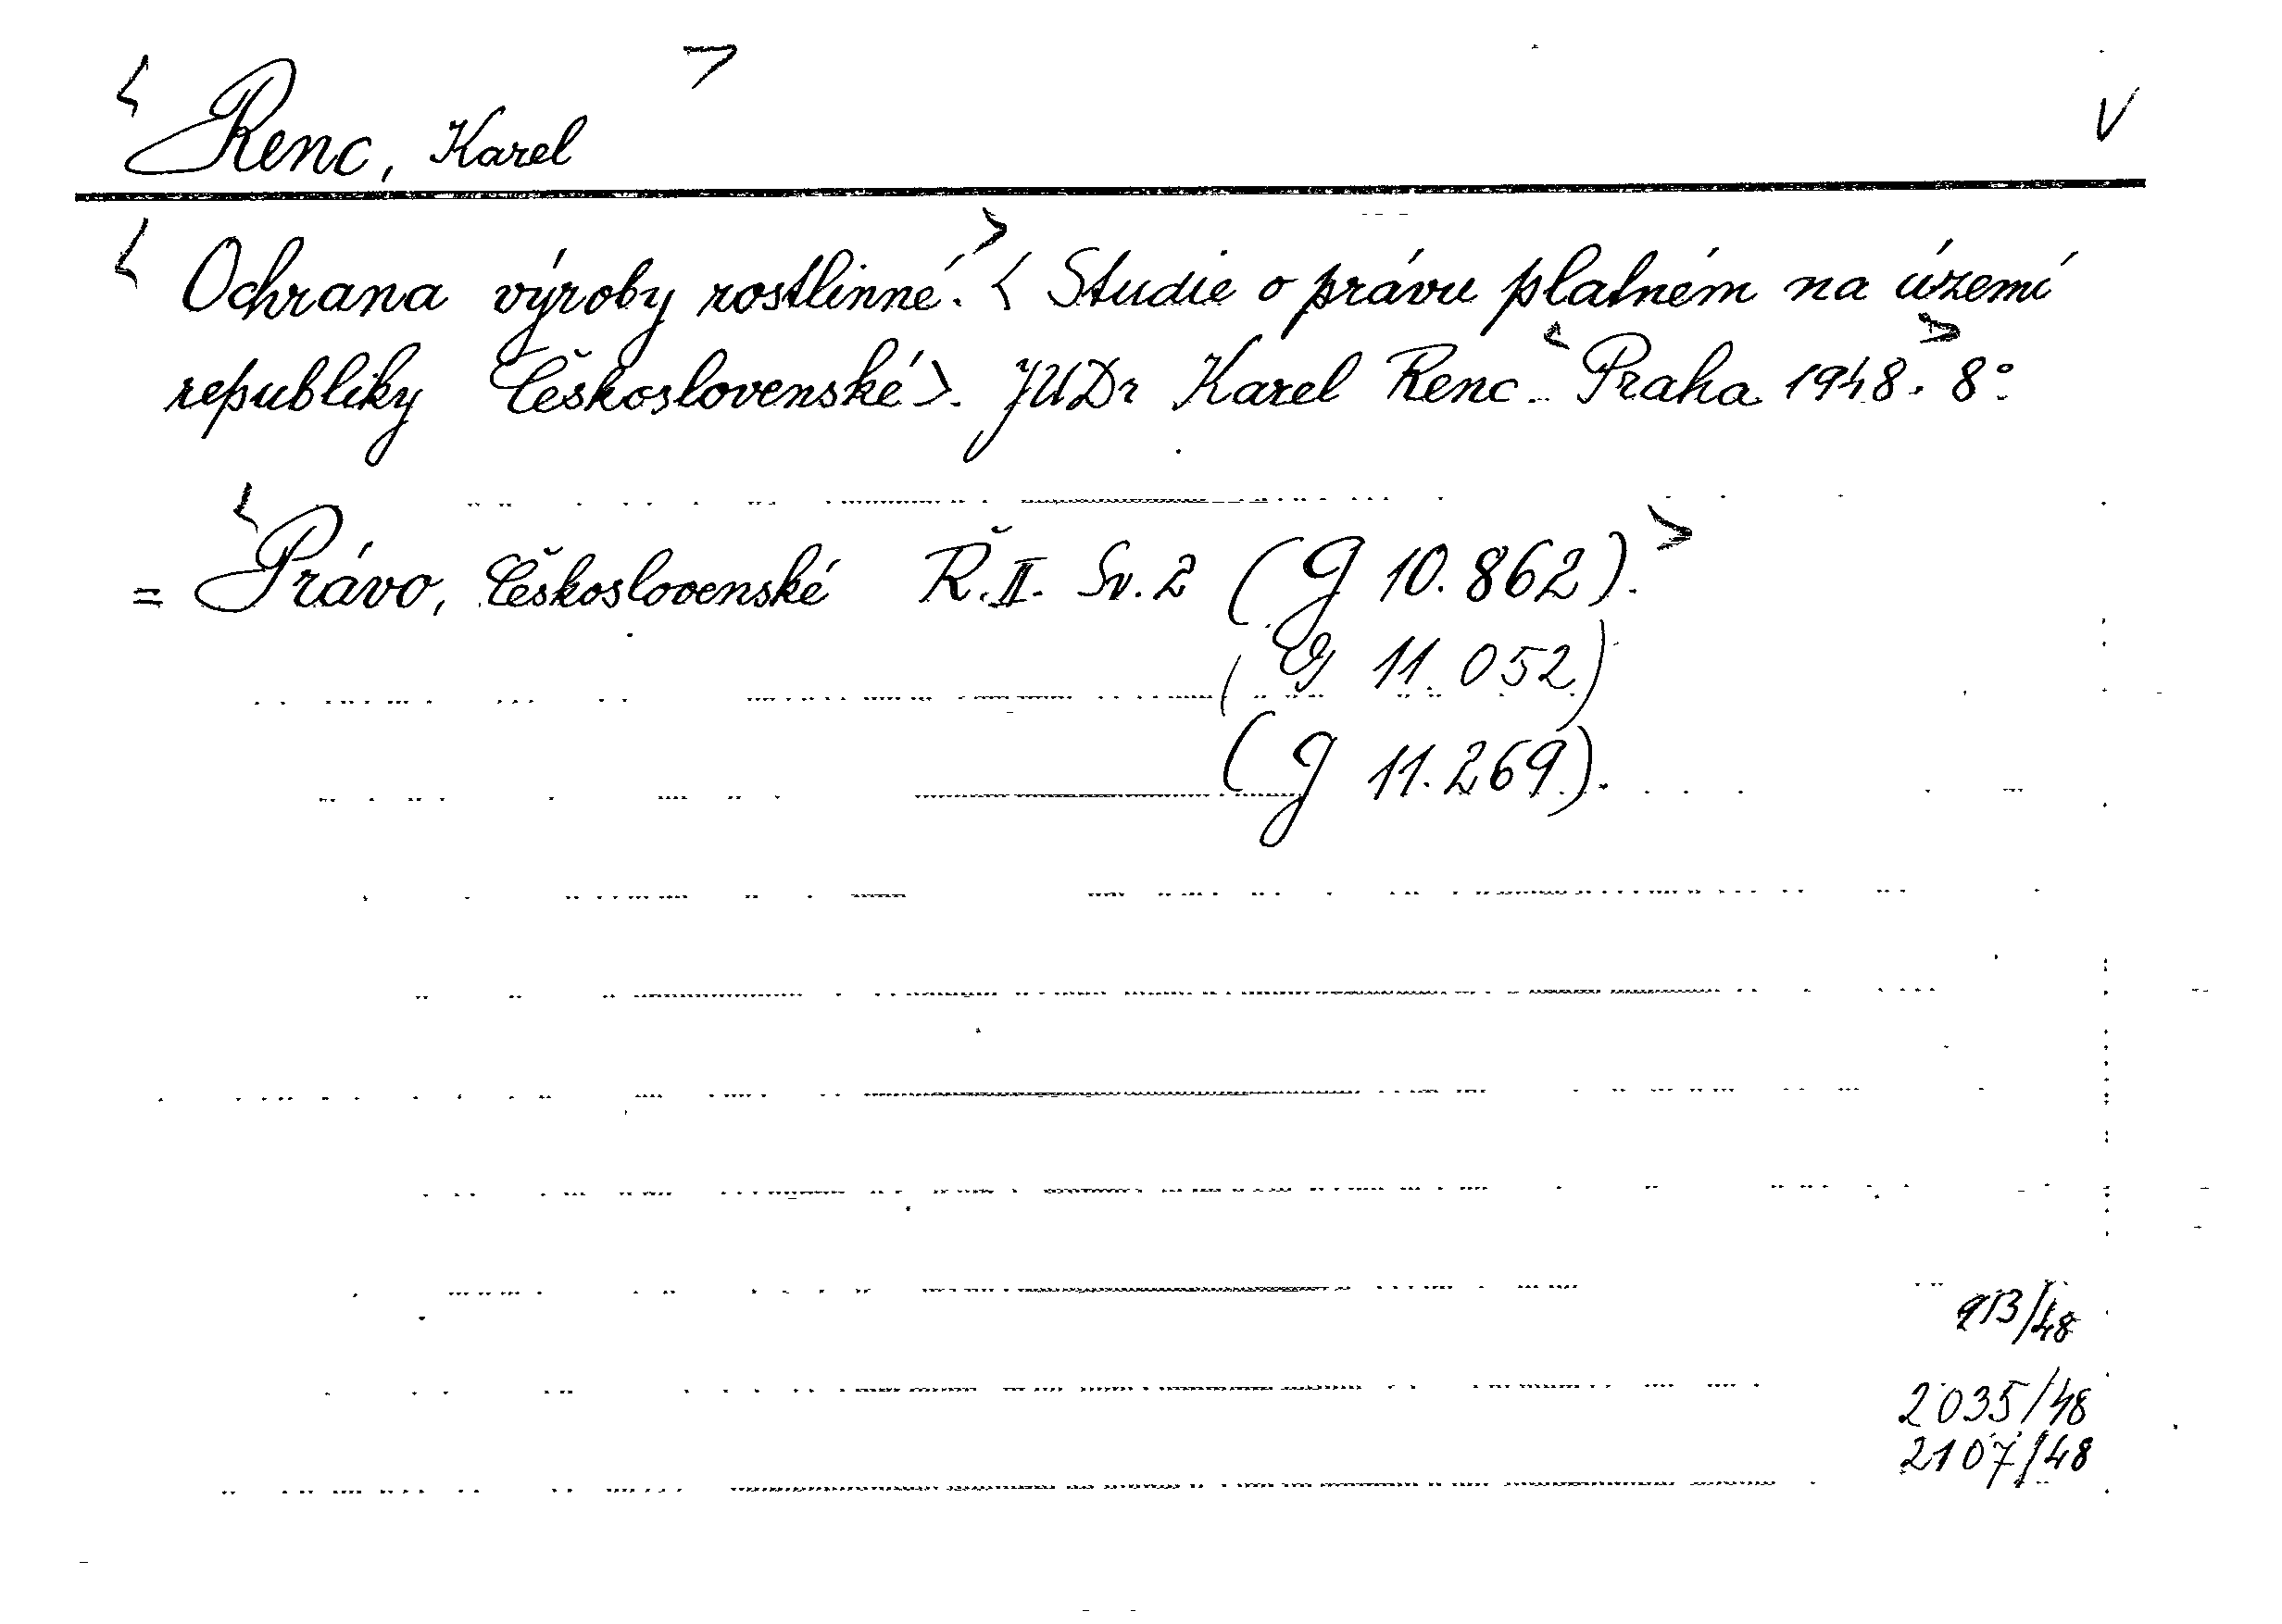 < Renc, Karel > V
< Ochrana výroby rostlinné. > < Studie o právu platném na území
republiky Československé >. JUDr Karel Renc. < Praha 1948. > 8°.
= < Právo, Československé Ř. II. Sv. 2 (G 10.862). >
(G 11.052)
(G 11.269).
913/48
2035/48
2107/48